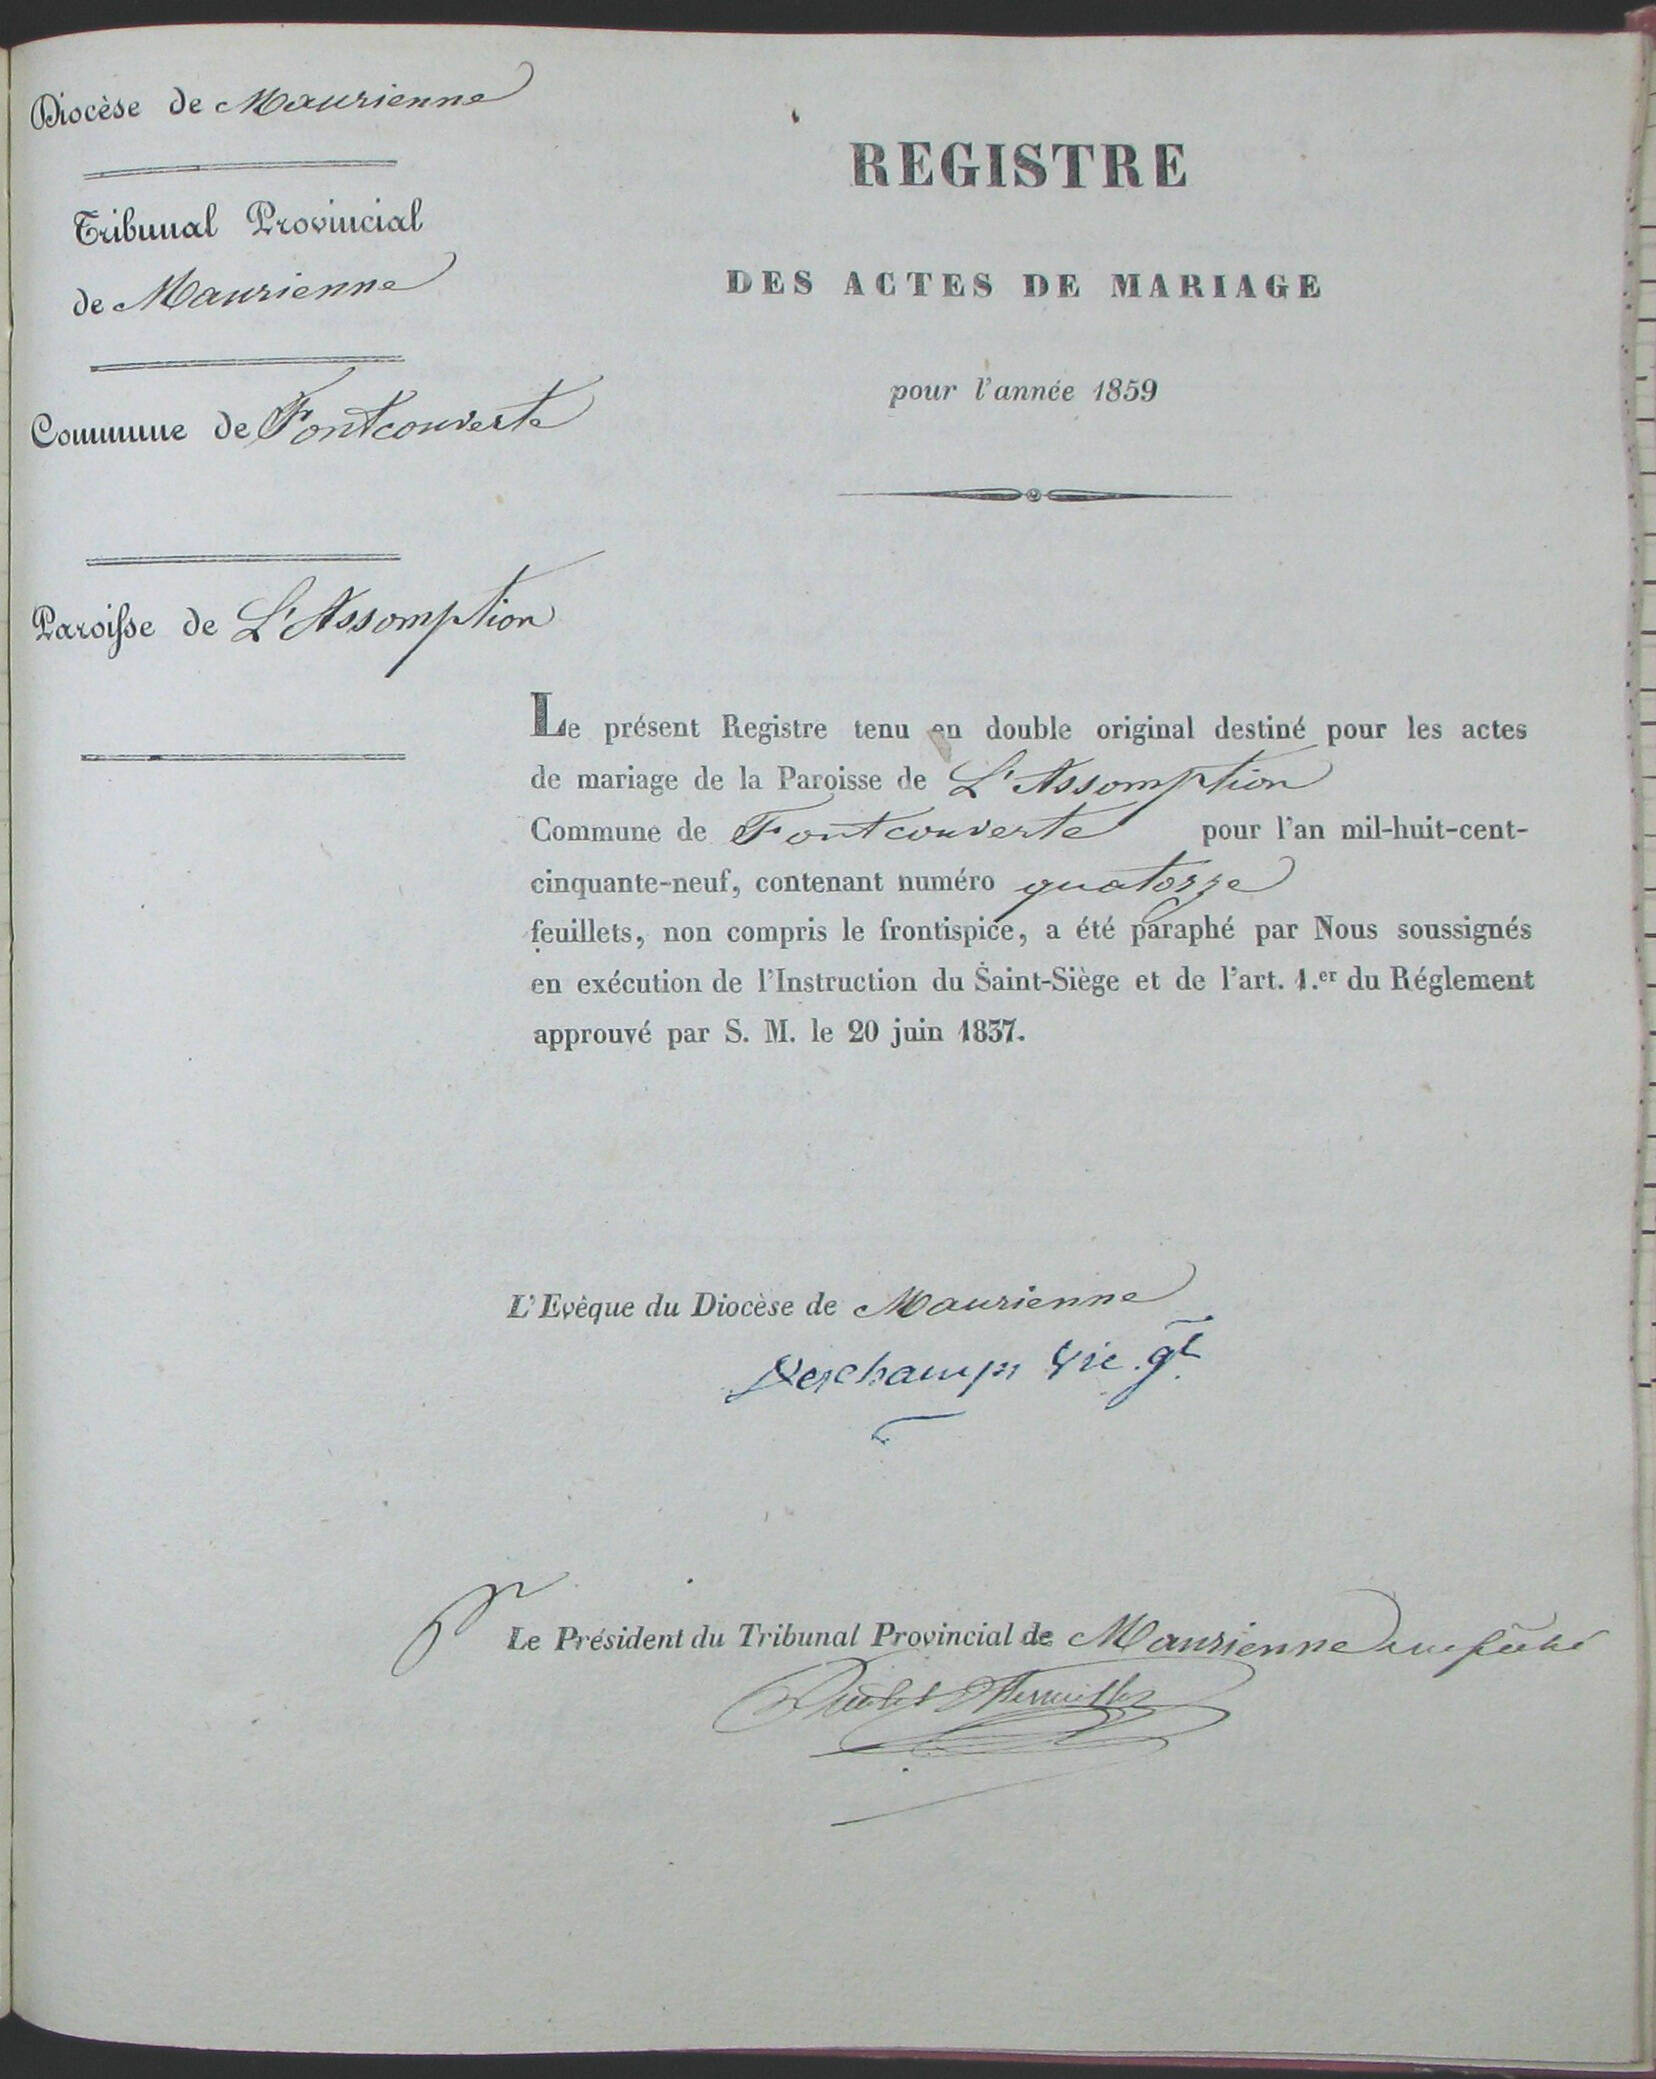 Diocèse de Maurienne
Tribunal Provincial
de Maurienne
Commune de Fontcouverte
Paroisse de L'Assomption
REGISTRE
DES ACTES DE MARIAGE
pour l'année 1859
Le présent Registre tenu en double original destiné pour les actes
de mariage de la Paroisse de L'Assomption
Commune de Fontcouverte pour l'an mil-huit-cent-
cinquante-neuf, contenant numéro quatorze
feuillets, non compris le frontispice, a été paraphé par Nous soussignés
en exécution de l'Instruction du Saint-Siège et de l'art. 1.er du Réglement
approuvé par S. M. le 20 juin 1837.
L'Evêque du Diocèse de Maurienne
Deschamps Vic. gl.
pr Le Président du Tribunal Provincial de Maurienne empêché